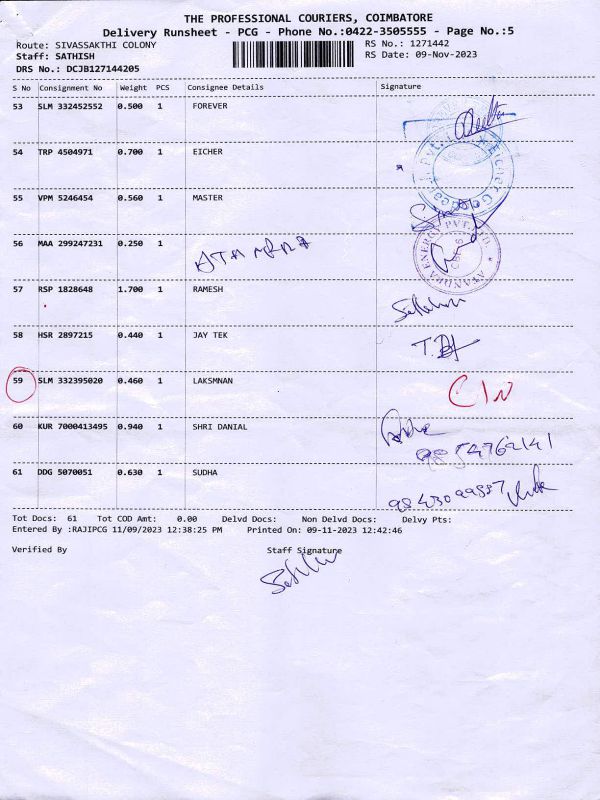 THE PROFESSIONAL COURIERS, COIMBATORE
Delivery Runsheet - PCG - Phone No.:0422-3505555 - Page No.:5
Route: SIVASSAKTHI COLONY RS No.: 1271442
Staff: SATHISH RS Date: 09-Nov-2023
DRS No.: DCJB127144205
S No Consignment No Weight PCS Consignee Details Signature
53 SLM 332452552 0.500 1 FOREVER
54 TRP 4504971 0.700 1 EICHER
55 VPM 5246454 0.560 1 MASTER
56 MAA 299247231 0.250 1
57 RSP 1828648 1.700 1 RAMESH
58 HSR 2897215 0.440 1 JAY TEK
59 SLM 332395020 0.460 1 LAKSMNAN
60 KUR 7000413495 0.940 1 SHRI DANIAL
61 DDG 5070051 0.630 1 SUDHA
Tot Docs: 61 Tot COD Amt: 0.00 Delvd Docs: Non Delvd Docs: Delvy Pts:
Entered By :RAJIPCG 11/09/2023 12:38:25 PM Printed On: 09-11-2023 12:42:46
Verified By Staff Signature